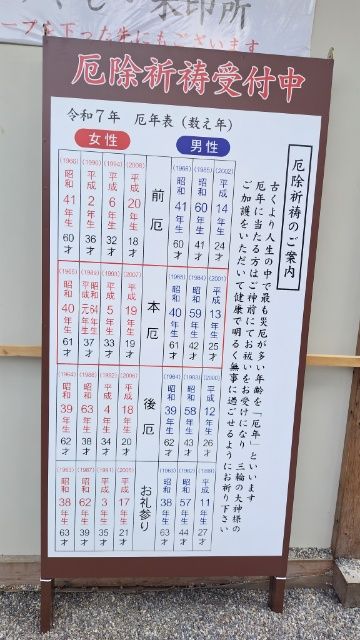 朱印所
厄除祈祷受付中
令和7年 厄年表(数え年)
女性
男性
厄除祈祷のご案内
古くより人生の中で最も災厄が多い年齢を「厄年」といいます
厄年に当たる方はご神前にてお祓いをお受けになり 三輪の大神様の
ご加護をいただいて健康で明るく無事に過ごせるようにお祈り下さい
前厄
(2002) 平成14年生 24才
(1985) 昭和60年生 41才
(1966) 昭和41年生 60才
(2006) 平成20年生 18才
(1994) 平成6年生 32才
(1990) 平成2年生 36才
(1966) 昭和41年生 60才
本厄
(2001) 平成13年生 25才
(1984) 昭和59年生 42才
(1965) 昭和40年生 61才
(2007) 平成19年生 19才
(1993) 平成5年生 33才
(1989) 昭和64年生 平成元年生 37才
(1965) 昭和40年生 61才
後厄
(2000) 平成12年生 26才
(1983) 昭和58年生 43才
(1964) 昭和39年生 62才
(2006) 平成18年生 20才
(1992) 平成4年生 34才
(1988) 昭和63年生 38才
(1964) 昭和39年生 62才
お礼参り
(1999) 平成11年生 27才
(1982) 昭和57年生 44才
(1963) 昭和38年生 63才
(2005) 平成17年生 21才
(1991) 平成3年生 35才
(1987) 昭和62年生 39才
(1963) 昭和38年生 63才